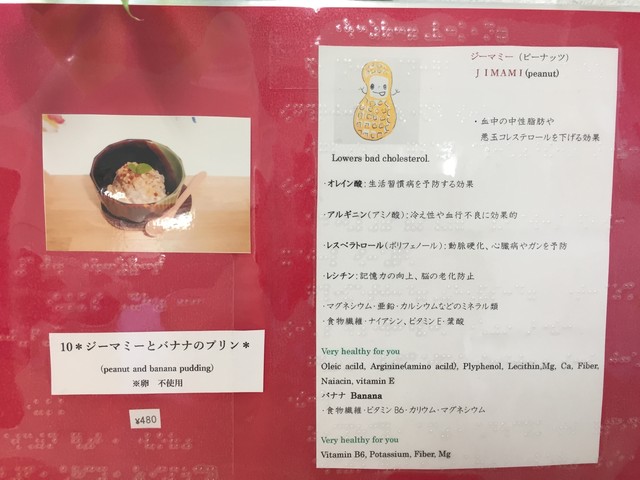 10＊ジーマミーとバナナのプリン＊
(peanut and banana pudding)
※卵　不使用
¥480
ジーマミー（ピーナッツ）
ＪＩＭＡＭＩ(peanut)
・血中の中性脂肪や
悪玉コレステロールを下げる効果
Lowers bad cholesterol.
・オレイン酸：生活習慣病を予防する効果
・アルギニン(アミノ酸)：冷え性や血行不良に効果的
・レスベラトロール(ポリフェノール)：動脈硬化、心臓病やガンを予防
・レシチン：記憶力の向上、脳の老化防止
・マグネシウム・亜鉛・カルシウムなどのミネラル類
・食物繊維・ナイアシン、ビタミンE・葉酸
Very healthy for you
Oleic acild, Arginine(amino acid), Plyphenol, Lecithin,Mg, Ca, Fiber,
Naiacin, vitamin E
バナナ Banana
・食物繊維・ビタミンB6・カリウム・マグネシウム
Very healthy for you
Vitamin B6, Potassium, Fiber, Mg